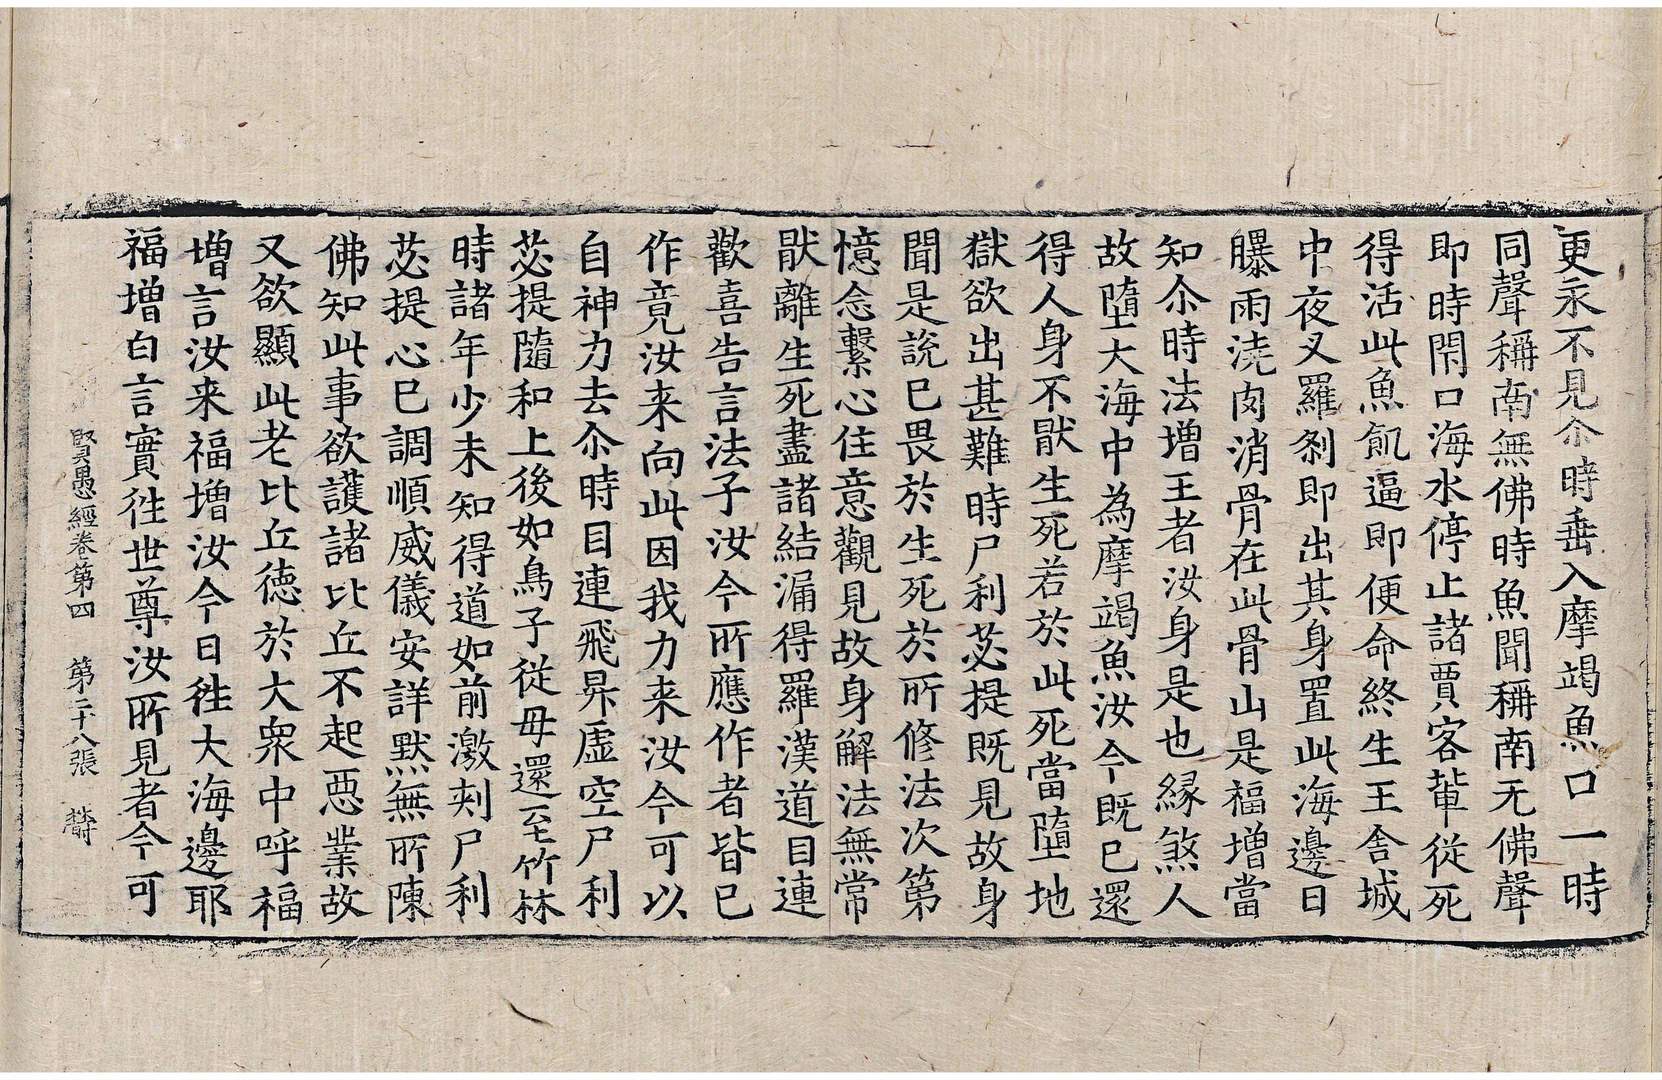 更永不見尒時垂入摩竭魚口一時
同聲稱南無佛時魚聞稱南无佛聲
即時閇口海水停止諸賈客輩從死
得活此魚飢逼即便命終生王舍城
中夜叉羅剎即出其身置此海邊日
曝雨澆肉消骨在此骨山是福增當
知尒時法增王者汝身是也緣煞人
故墮大海中為摩竭魚汝今既已還
得人身不猒生死若於此死當墮地
獄欲出甚難時尸利苾提既見故身
聞是說已畏於生死於所修法次第
憶念繫心住意觀見故身解法無常
猒離生死盡諸結漏得羅漢道目連
歡喜告言法子汝今所應作者皆已
作竟汝来向此因我力来汝今可以
自神力去尒時目連飛昇虛空尸利
苾提隨和上後如鳥子從母還至竹林
時諸年少未知得道如前激刾尸利
苾提心已調順威儀安詳默無所陳
佛知此事欲護諸比丘不起惡業故
又欲顯此老比丘德於大眾中呼福
增言汝来福增汝今日徃大海邊耶
福增白言實徃世尊汝所見者今可
賢愚經卷第四　第二十八張